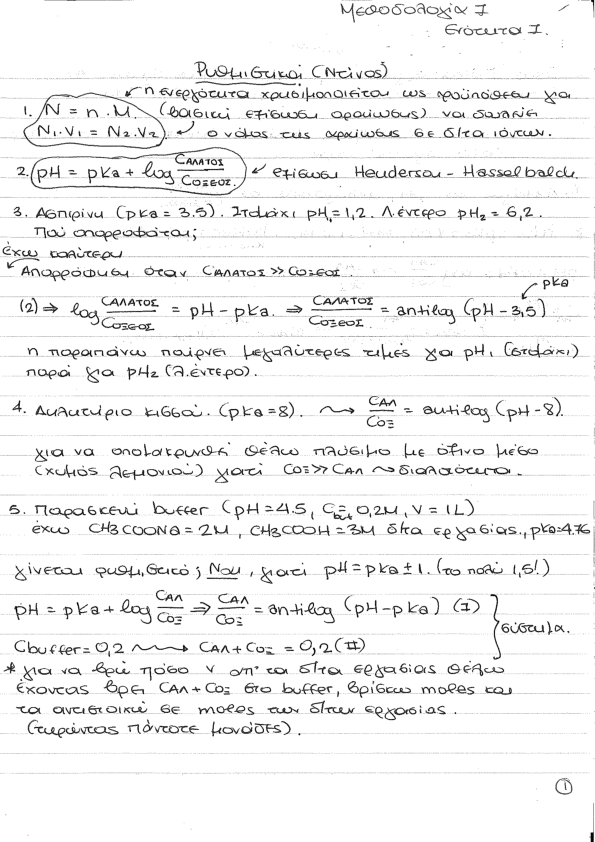 Μεθοδολογία I
Ενότητα I.
Ρυθμιστικοί (Ντίνος)
η ενεργότητα χρησιμοποιείται ως προϋπόθεση για
1. N = n.M. (βασική εξίσωση αραίωσης) να δουλεύει
N1.V1 = N2.V2 ο νόμος της αραίωσης σε δ/τα ιόντων.
2. pH = pKa + log CΑΛΑΤΟΣ / CΟΞΕΟΣ εξίσωση Henderson - Hasselbalch.
3. Ασπιρίνη (pKa = 3.5). Στομάχι pH1=1,2. Λ.έντερο pH2 = 6,2.
Πού απορροφάται;
έχω καλύτερη
Απορρόφηση όταν CΑΛΑΤΟΣ >> CΟΞΕΟΣ.
pKa
(2) ⇒ log CΑΛΑΤΟΣ / CΟΞΕΟΣ = pH - pKa. ⇒ CΑΛΑΤΟΣ / CΟΞΕΟΣ = antilog (pH - 3,5)
η παραπάνω παίρνει μεγαλύτερες τιμές για pH1 (στομάχι)
παρά για pH2 (λ.έντερο).
4. Δηλητήριο κισσού. (pKa = 8). CΑΛ / CΟΞ = antilog (pH - 8).
για να απομακρυνθεί θέλω πλύσιμο με όξινο μέσο
(χυμός λεμονιού) γιατί CΟΞ >> CΑΛ διαλυτότητα.
5. Παρασκευή buffer (pH = 4.5, C 0,2M, V = 1L)
έχω CH3COONa = 2M, CH3COOH = 3M δ/τα εργασίας., pKa=4.76
γίνεται ρυθμιστικό; Ναι, γιατί pH = pKa ± 1. (το πολύ 1,5!)
pH = pKa + log CΑΛ / CΟΞ ⇒ CΑΛ / CΟΞ = antilog (pH - pKa) (I)
σύστημα.
Cbuffer = 0,2 CΑΛ + CΟΞ = 0,2 (II)
* για να βρω πόσο V απ' τα δ/τα εργασίας θέλω
έχοντας βρει CΑΛ + CΟΞ στο buffer, βρίσκω moles και
τα αντιστοιχώ σε moles των δ/των εργασίας.
(τηρώντας πάντοτε μονάδες).
1